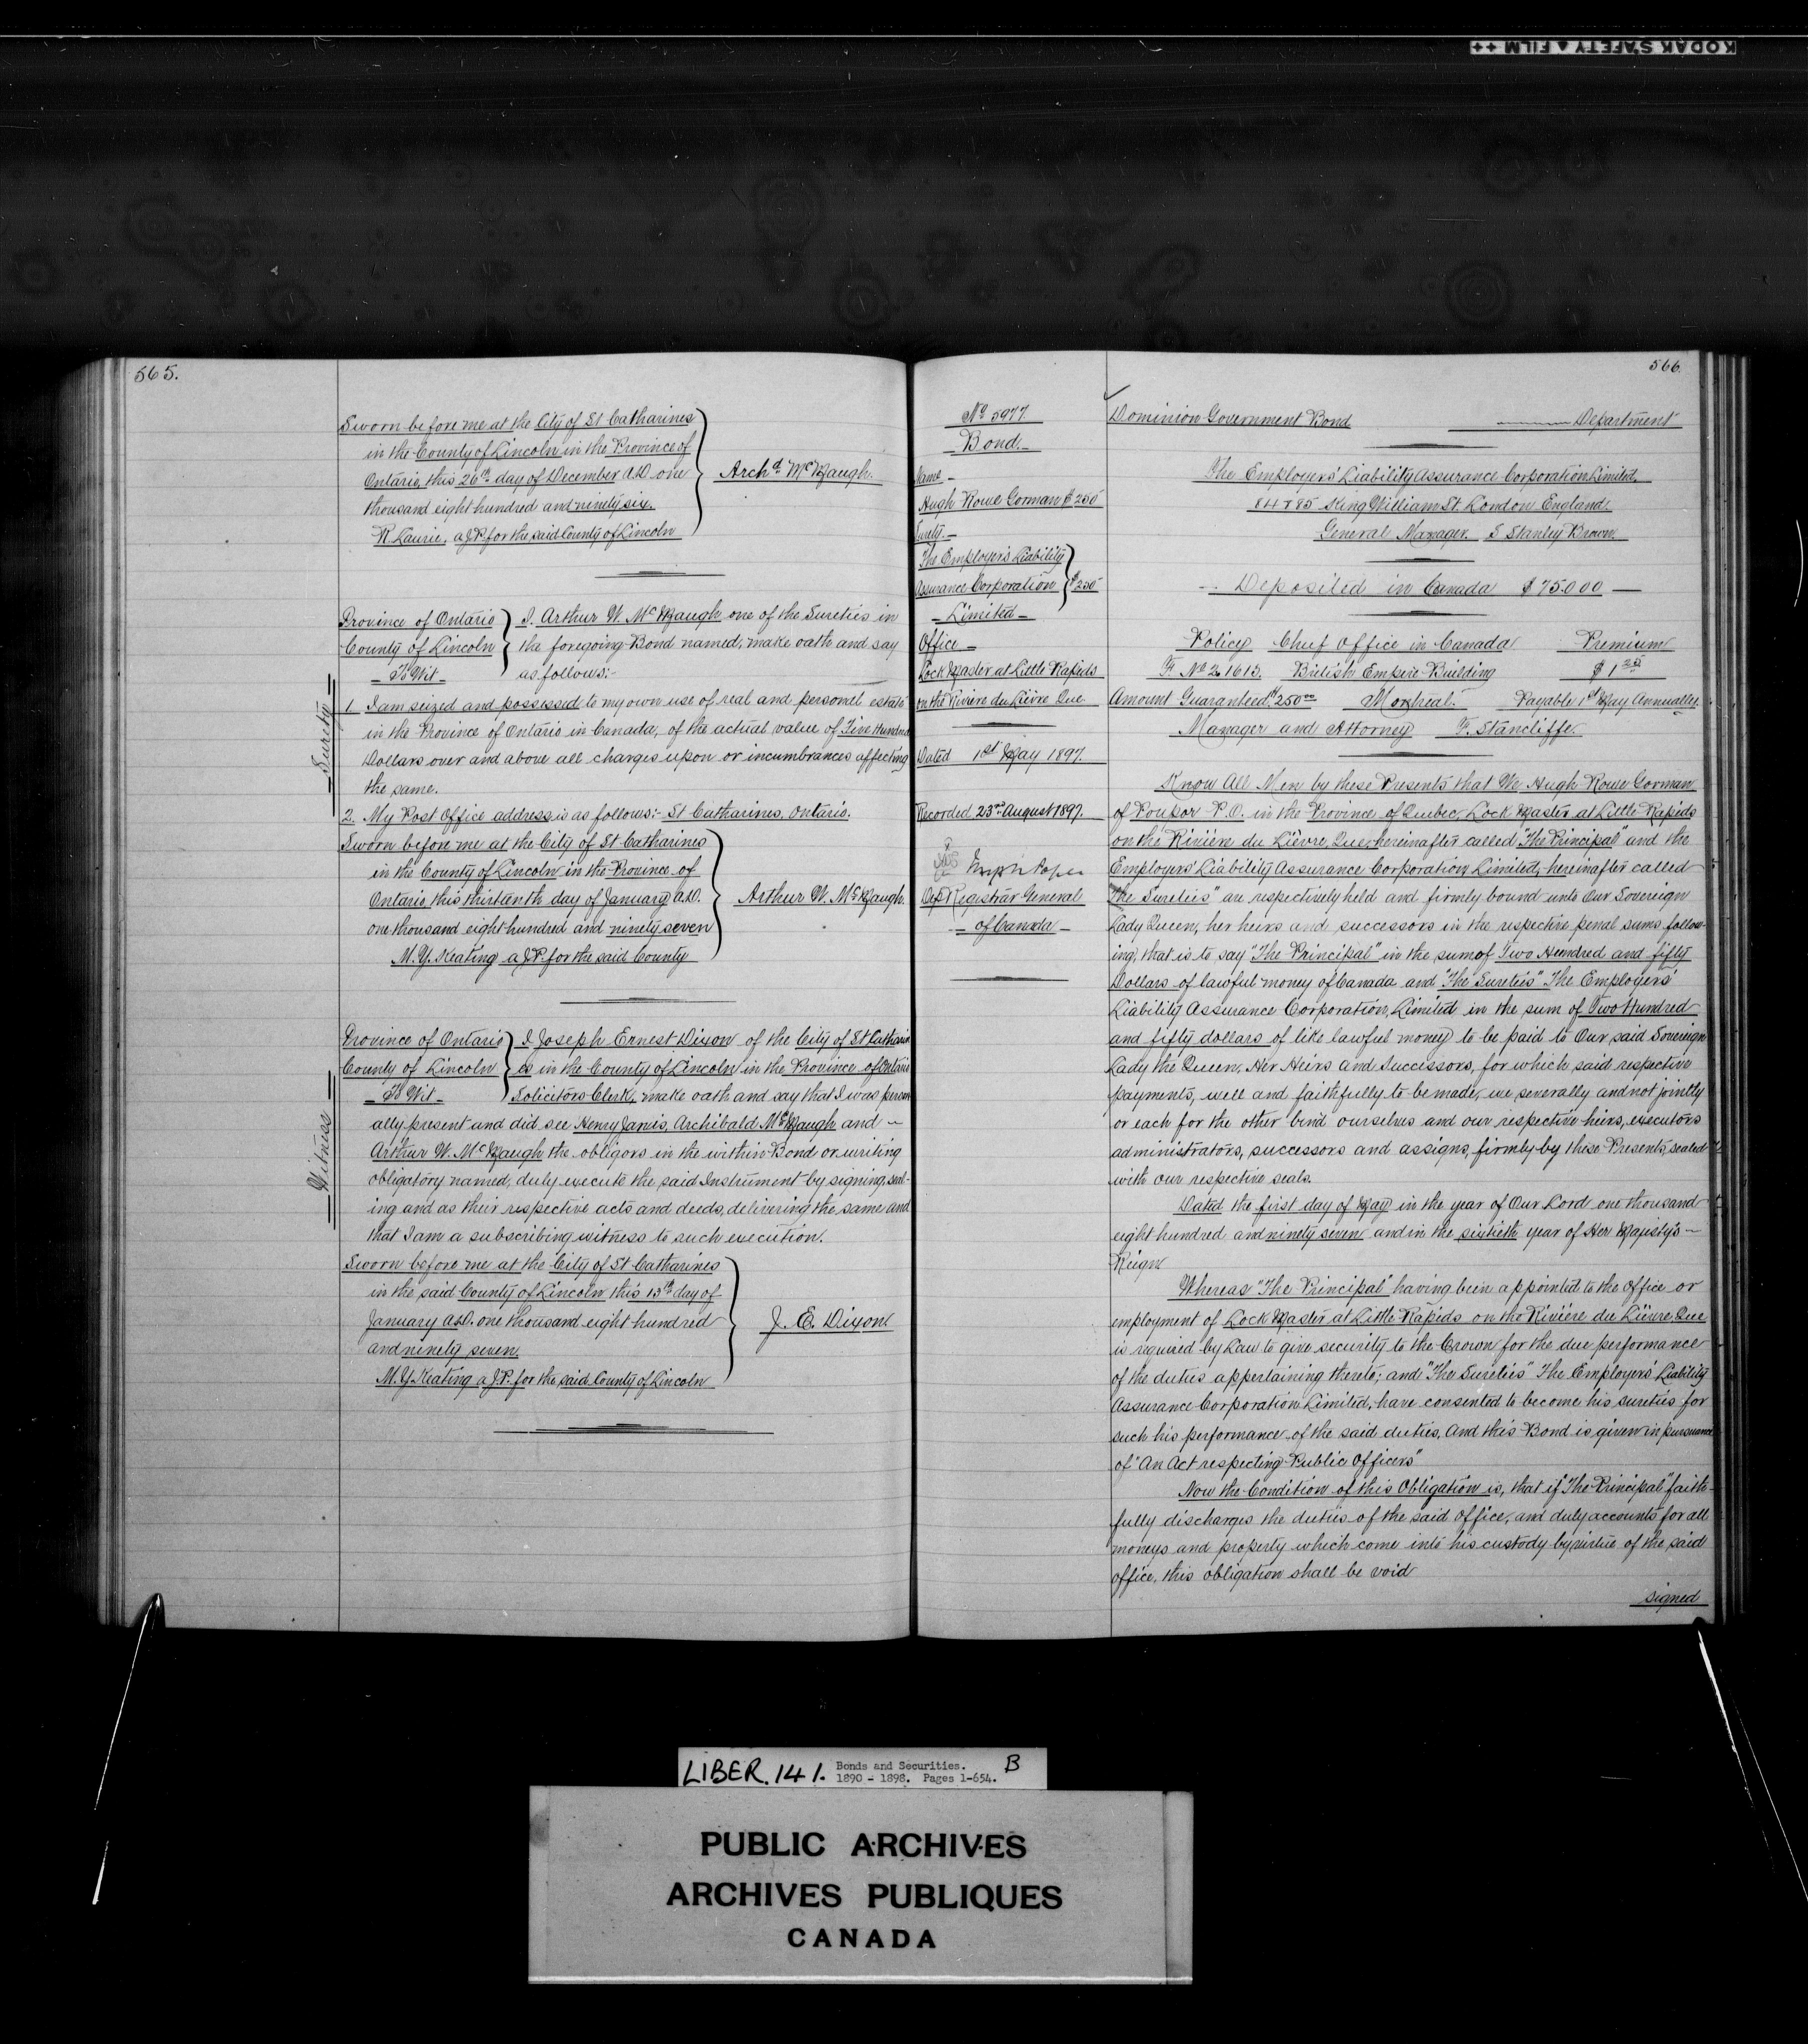 KODAK SAFETY FILM ++
565.
Sworn before me at the City of St Catharines
in the County of Lincoln in the Province of
Ontario, this 26th day of December A.D. one
thousand eight hundred and ninety six.
R. Laurie, a J.P. for the said County of Lincoln
Archd. McMaugh.
Province of Ontario
County of Lincoln
To Wit
I, Arthur W. McMaugh one of the Sureties in
the foregoing Bond named, make oath and say
as follows:-
Surety
1 I am seized and possessed to my own use of real and personal estate
in the Province of Ontario in Canada, of the actual value of Five Hundred
Dollars over and above all charges upon or incumbrances affecting
the same.
2. My Post Office address is as follows:- St Catharines, Ontario.
Sworn before me at the City of St Catharines
in the County of Lincoln in the Province of
Ontario this thirteenth day of January A.D.
one thousand eight hundred and ninety seven
M. Y. Keating a J.P. for the said County
Arthur W. McMaugh.
Province of Ontario
County of Lincoln
To Wit
I Joseph Ernest Dixon of the City of St Catharin
es in the County of Lincoln in the Province of Ontario
Solicitors Clerk, make oath and say that I was person
Witness
ally present and did see Henry Jarvis, Archibald McMaugh and
Arthur W. McMaugh the obligors in the within Bond or writing
obligatory named, duly execute the said Instrument by signing, seal-
ing and as their respective acts and deeds, delivering the same and
that I am a subscribing witness to such execution.
Sworn before me at the City of St Catharines
in the said County of Lincoln this 13th day of
January A.D. one thousand eight hundred
and ninety seven.
M. Y. Keating a J.P. for the said County of Lincoln
J. E. Dixon
566
No 5977.
Bond.
Name
Hugh Rowe Gorman $250
Surety.
The Employers Liability
Assurance Corporation $250
Limited
Office
Lock Master at Little Rapids
on the Rivière du Lièvre Que
Dated 1st May 1897.
Recorded 23rd August 1897.
Joseph Pope
Dep Registrar General
of Canada
Dominion Government Bond Department
The Employers' Liability Assurance Corporation Limited.
84 & 85 King William St. London England.
General Manager. S Stanley Brown.
Deposited in Canada $75.000
Policy Chief Office in Canada Premium
No 21613. British Empire Building $1 25
Amount Guaranteed $250 00 Montreal. Payable 1st May Annually.
Manager and Attorney F. Stancliffe.
Know All Men by these Presents that We Hugh Rowe Gorman
of Poupor P.O. in the Province of Quebec, Lock Master at Little Rapids
on the Rivière du Lièvre, Que, hereinafter called "The Principal" and the
Employers' Liability Assurance Corporation Limited, hereinafter called
"The Sureties" are respectively held and firmly bound unto Our Sovereign
Lady Queen, her heirs and successors in the respective penal sums follow-
ing, that is to say "The Principal" in the sum of Two Hundred and fifty
Dollars of lawful money of Canada and "The Sureties" The Employers'
Liability Assurance Corporation, Limited in the sum of Two Hundred
and fifty dollars of like lawful money to be paid to Our said Sovereign
Lady the Queen, Her Heirs and Successors, for which said respective
payments, well and faithfully to be made, we severally and not jointly
or each for the other bind ourselves and our respective heirs, executors
administrators, successors and assigns, firmly by these Presents, sealed
with our respective seals.
Dated the first day of May in the year of Our Lord one thousand
eight hundred and ninety seven and in the sixtieth year of Her Majesty's
Reign
Whereas "The Principal" having been appointed to the office or
employment of Lock Master at Little Rapids on the Rivière du Lièvre, Que
is required by Law to give security to the Crown for the due performance
of the duties appertaining thereto; and "The Sureties" The Employers' Liability
Assurance Corporation Limited, have consented to become his sureties for
such his performance of the said duties, And this Bond is given in pursuance
of "An Act respecting Public Officers"
Now the Condition of this Obligation is, that if "The Principal" faith-
fully discharges the duties of the said office, and duly accounts for all
moneys and property which come into his custody by virtue of the said
office, this obligation shall be void
signed
LIBER. 141. Bonds and Securities. B
1890 - 1898. Pages 1-654.
PUBLIC ARCHIVES
ARCHIVES PUBLIQUES
CANADA